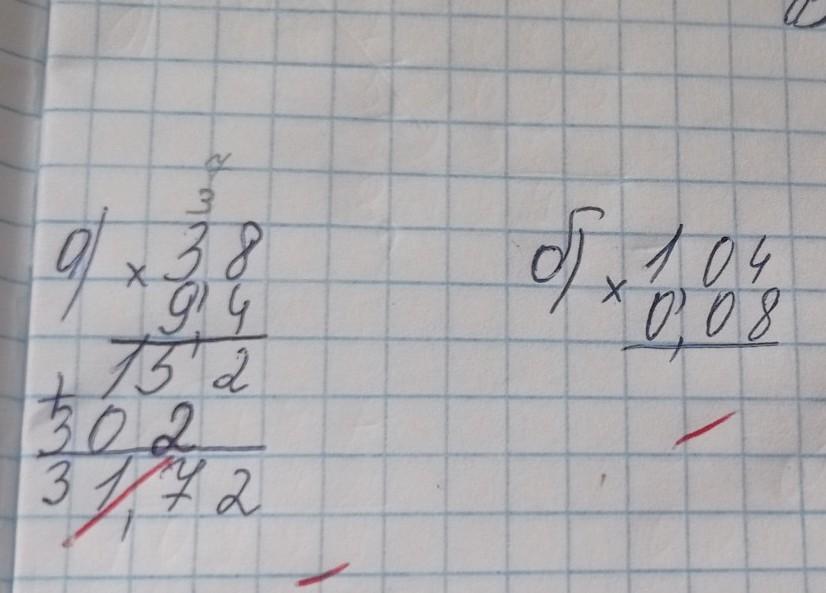 7
3
а) × 38
9,4
152
+
302
31,72
б) × 104
0,08